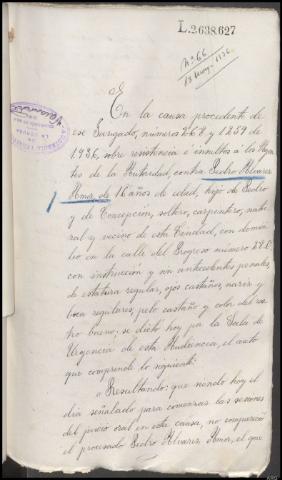 L.2.638.627
Nº 66
En la causa procedente de
ese Juzgado, números 268 y 1259 de
1.936, sobre resistencia é insultos á los Agen
tes de la Autoridad, contra Pedro Alvarez
Amor, de 16 años de edad, hijo de Pedro
y de Concepción, soltero, carpintero, natu
ral y vecino de esta Ciudad, con domici
lio en la calle del Progreso número
con instrucción y sin antecedentes penales,
de estatura regular, ojos castaños, nariz y
boca regulares, pelo castaño y color del ros
tro bueno; se dictó hoy por la Sala de
Urgencia de esta Audiencia, el auto
que comprende lo siguiente:
"Resultando: que siendo hoy el
día señalado para comenzar las sesiones
del juicio oral en esta causa, no compareció
el procesado Pedro Alvarez Amor, el que